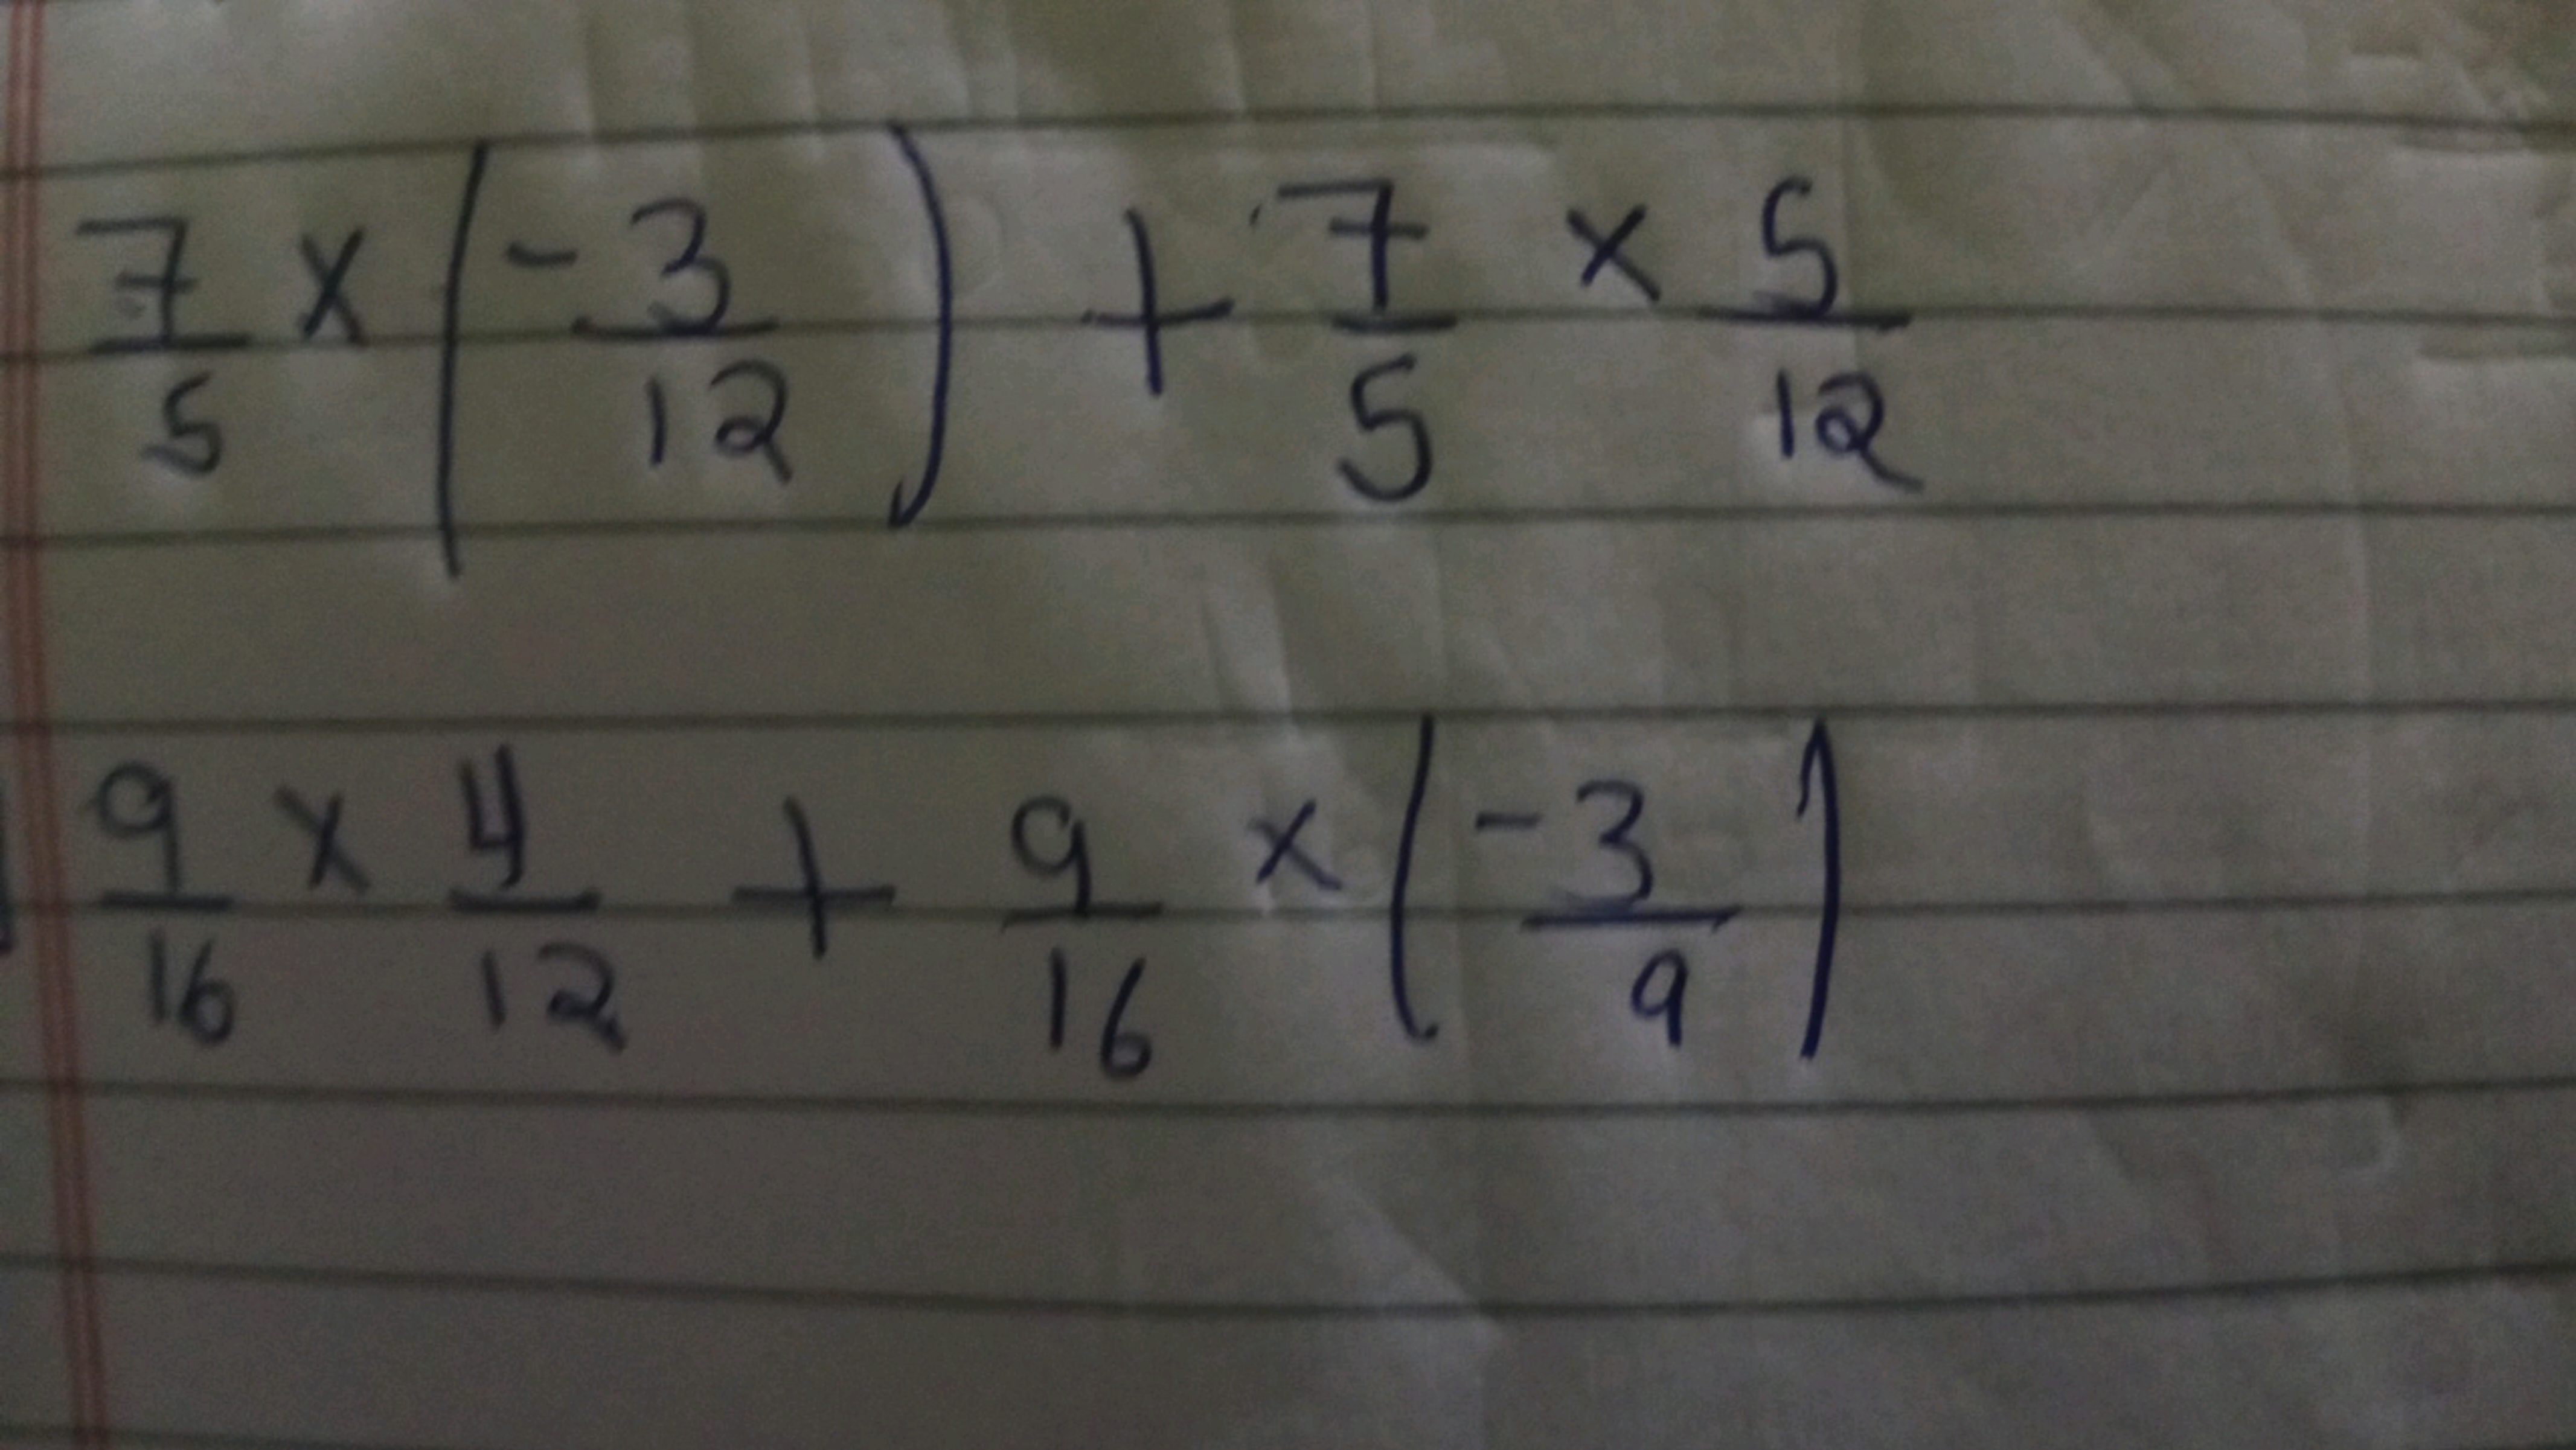 7/5 × (-3/12) + 7/5 × 5/12
9/16 × 4/12 + 9/16 × (-3/9)